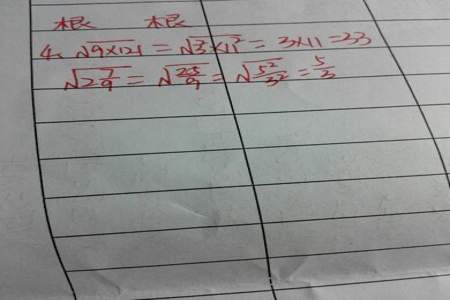 根 根
4、√9×121 = √3²×11² = 3×11 = 33
√2 7/9 = √25/9 = √5²/3² = 5/3